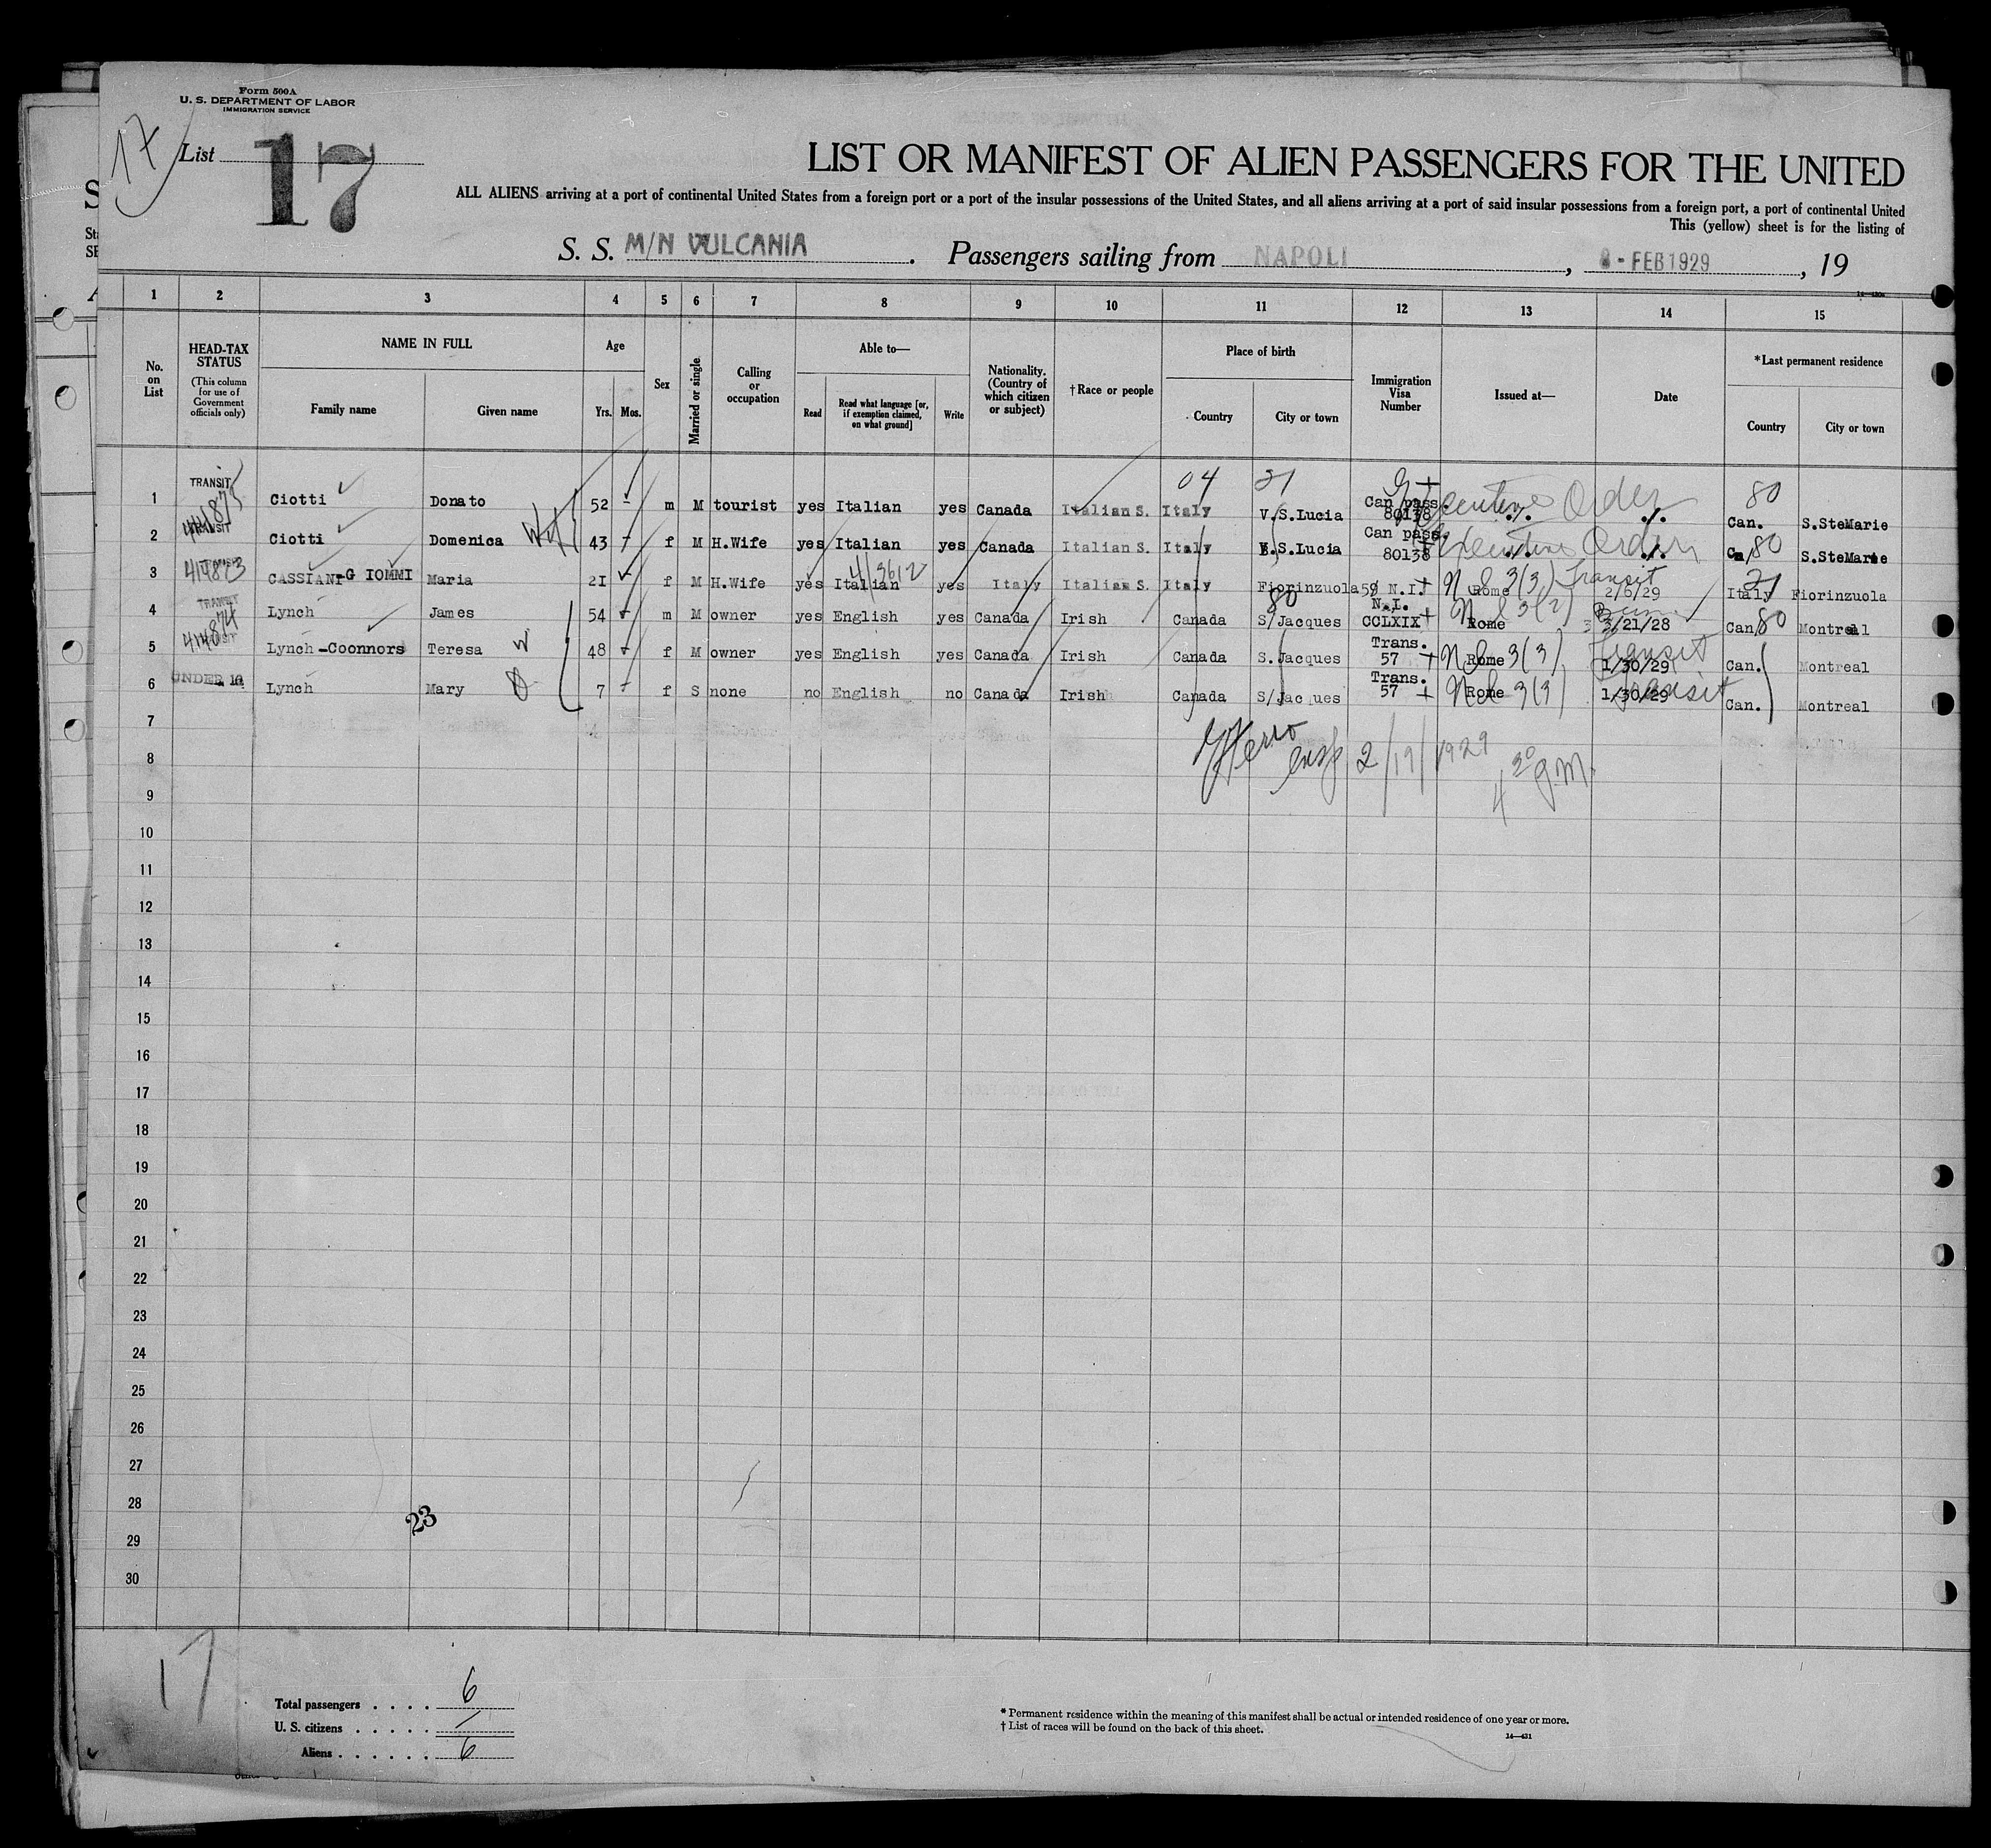 Form 500A
U. S. DEPARTMENT OF LABOR
IMMIGRATION SERVICE
17
List 17
LIST OR MANIFEST OF ALIEN PASSENGERS FOR THE UNITED
ALL ALIENS arriving at a port of continental United States from a foreign port or a port of the insular possessions of the United States, and all aliens arriving at a port of said insular possessions from a foreign port, a port of continental United
This (yellow) sheet is for the listing of
S. S. M/N VULCANIA . Passengers sailing from NAPOLI , 8 - FEB 1929 , 19
1 2 3 4 5 6 7 8 9 10 11 12 13 14 15
No. on List
HEAD-TAX STATUS
(This column for use of Government officials only)
NAME IN FULL
Family name
Given name
Age
Yrs. Mos.
Sex
Married or single
Calling or occupation
Able to—
Read
Read what language [or, if exemption claimed, on what ground]
Write
Nationality. (Country of which citizen or subject)
†Race or people
Place of birth
Country
City or town
Immigration Visa Number
Issued at—
Date
*Last permanent residence
Country
City or town
04 21 80
1 TRANSIT 414875 Ciotti Donato 52 - m M tourist yes Italian yes Canada Italian S. Italy V.S.Lucia Can pass. 80138 Executive Order ./. ./. Can. S.SteMarie
2 TRANSIT Ciotti Domenica 43 - f M H.Wife yes Italian yes Canada Italian S. Italy V.S.Lucia Can pass. 80138 Executive Order ./. ./. Can. 80 S.SteMarie
3 414873 CASSIANI-G IOMMI Maria 2I - f M H.Wife yes Italian yes Italy Italian S. Italy Fiorinzuola 59 N.I. Rome 3(3) Transit 2/6/29 Italy 21 Fiorinzuola
4 TRANSIT Lynch James 54 - m M owner yes English yes Canada Irish Canada S/Jacques 80 N.I. CCLXIX Rome 3(2) 3/21/28 Can. 80 Montreal
5 414874 TRANSIT Lynch-Coonnors Teresa W 48 - f M owner yes English yes Canada Irish Canada S.Jacques Trans. 57 Rome 3(3) Transit 1/30/29 Can. Montreal
6 UNDER 16 Lynch Mary 7 - f S none no English no Canada Irish Canada S/Jacques Trans. 57 Rome 3(3) Transit 1/30/29 Can. Montreal
7
2/19/1929
8
9
10
11
12
13
14
15
16
17
18
19
20
21
22
23
24
25
26
27
28
23
29
30
17
Total passengers . . . . 6
U. S. citizens . . . . . /
Aliens . . . . . . 6
* Permanent residence within the meaning of this manifest shall be actual or intended residence of one year or more.
† List of races will be found on the back of this sheet.
14—431